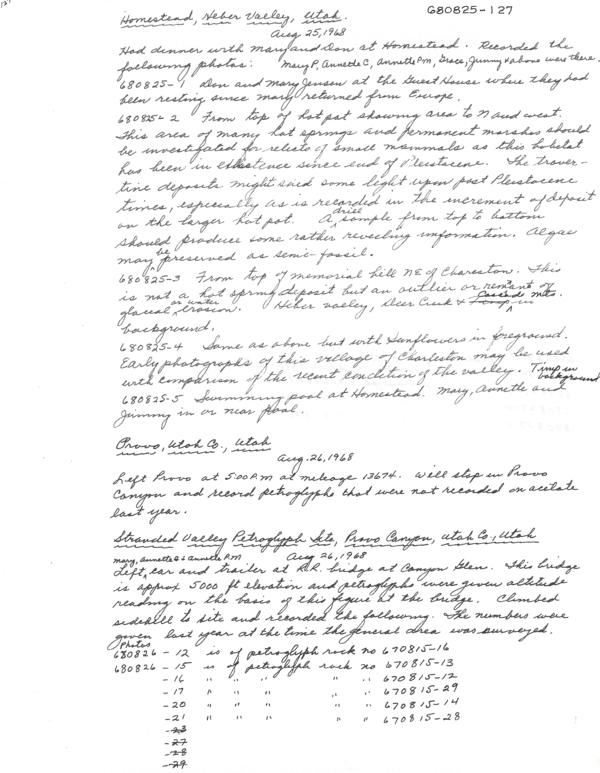 127
680825-127
Homestead, Heber Valley, Utah.
Aug 25, 1968
Had dinner with Mary and Don at Homestead. Recorded the
following photos: Mary P, Annette C, Annette P.M, Grace, Jimmy & above were there.
680825-1 Don and Mary Jensen at the Guest House where they had
been resting since Mary returned from Europe.
680825-2 From top of hot pot showing area to N and west.
This area of many hot springs and permanent marshes should
be investigated for relicts of small mammals as this habitat
has been in existence since end of Pleistocene. The traver-
tine deposits might shed some light upon post Pleistocene
times, especially as is recorded in the increment of deposit
on the larger hot pot. A drill sample from top to bottom
should produce some rather revealing information. Algae
may be preserved as semi-fossil.
680825-3 From top of memorial hill NE of Charleston. This
is not a hot spring deposit but an outlier or remnant of
glacial or water erosion. Heber valley, Deer Creek & Cascade mts. in
background.
680825-4 Same as above but with Sunflowers in foreground.
Early photographs of this village of Charleston may be used
with comparison of the recent condition of the valley. Timp in background
680825-5 Swimming pool at Homestead. Mary, Annette and
Jimmy in or near pool.
Provo, Utah Co., Utah
Aug. 26, 1968
Left Provo at 5:00 P.M at mileage 13674. Will stop in Provo
Canyon and record petroglyphs that were not recorded on acetate
last year.
Stranded Valley Petroglyph Site, Provo Canyon, Utah Co., Utah
Mary, Annette C & Annette P.M Aug 26, 1968
Left car and trailer at R.R. bridge at Canyon Glen. This bridge
is approx 5000 ft elevation and petroglyphs were given altitude
reading on the basis of this figure at the bridge. Climbed
sidehill to site and recorded the following. The numbers were
given last year at the time the general area was surveyed.
Photos
680826 - 12 is of petroglyph rock no 670815-16
680826 - 15 is of petroglyph rock no 670815-13
-16 " " " " " 670815-12
-17 " " " " " 670815-29
-20 " " " " " 670815-14
-21 " " " " " 670815-28
-23
-27
-28
-29